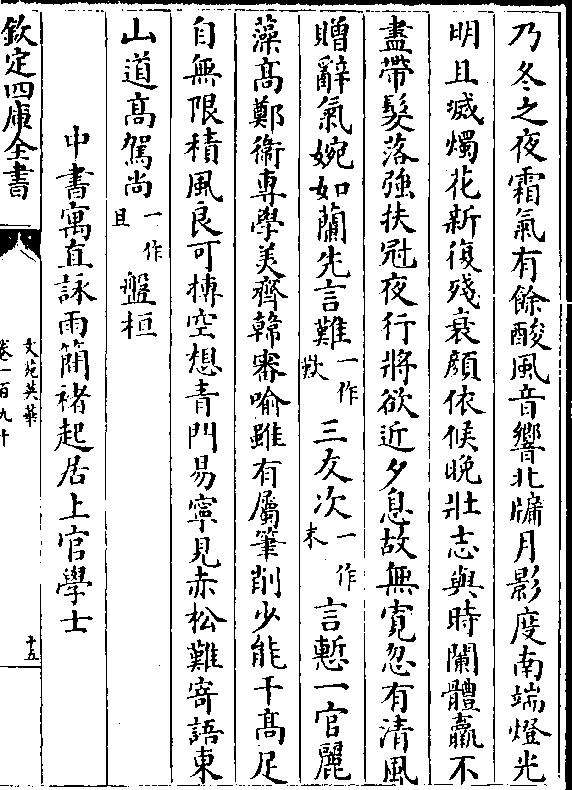 乃冬之夜霜氣有餘酸風音響北牖月影度南端燈光
明且滅燭花新復殘衰顔依候晩壯志與時闌體羸不
盡帶髮落強扶冠夜行將欲近夕息故無寛忽有清風
贈辭氣婉如蘭先言難一作歎三友次一作末言慙一官麗
藻髙鄭衛專學美齊韓審喻雖有屬筆削少能干髙足
自無限積風良可摶空想青門易寧見赤松難寄語東
山道髙駕尚一作且盤桓
中書寓直詠雨簡褚起居上官學士
欽定四庫全書
文苑英華
卷一百九十
十五